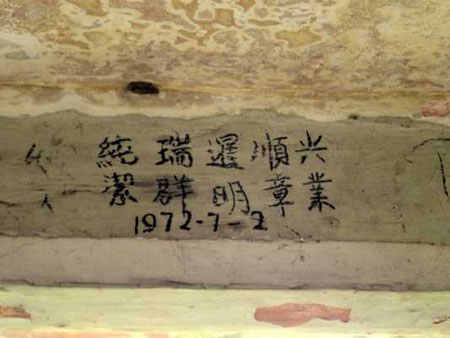 純 瑞 暹 順 兴
潔 群 明 章 業
1972-7-2